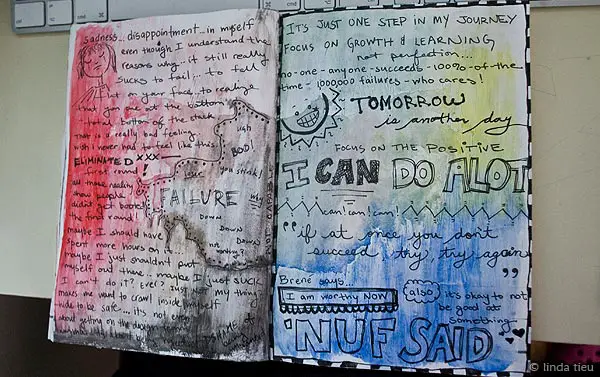 sadness.. disappointment.. in myself
even though I understand the
reasons why.. it still really
sucks to fail... to fall
flat on your face, to realize
that you are at the bottom
total bottom of the stack
That is a really bad feeling
wish I never had to feel like this
ELIMINATED XXX
first round
all those reality
show people
didn't get booted
the first round!
maybe I should have
spent more hours on
maybe I just shouldn't put
myself out there.. maybe I just SUCK
I can't do it? Ever? Just not my thing
makes me want to crawl inside myself
hide to be safe... it's not even
about getting on the
UGH
BOO!
you stink!
LOSER
FAILURE
why
DOWN
DOWN
DOWN
not
worthy?
IT'S JUST ONE STEP IN MY JOURNEY
FOCUS ON GROWTH & LEARNING
not perfection...
no-one-anyone-succeeds-100%-of-the
time-1000,000 failures-who cares!
TOMORROW
is another day
FOCUS ON THE POSITIVE
I CAN DO ALOT
can! can! can!
"if at once you don't
succeed try, try again"
Brené says...
I am worthy NOW
also
it's okay to not
be good at
something
'NUF SAID
© linda tieu